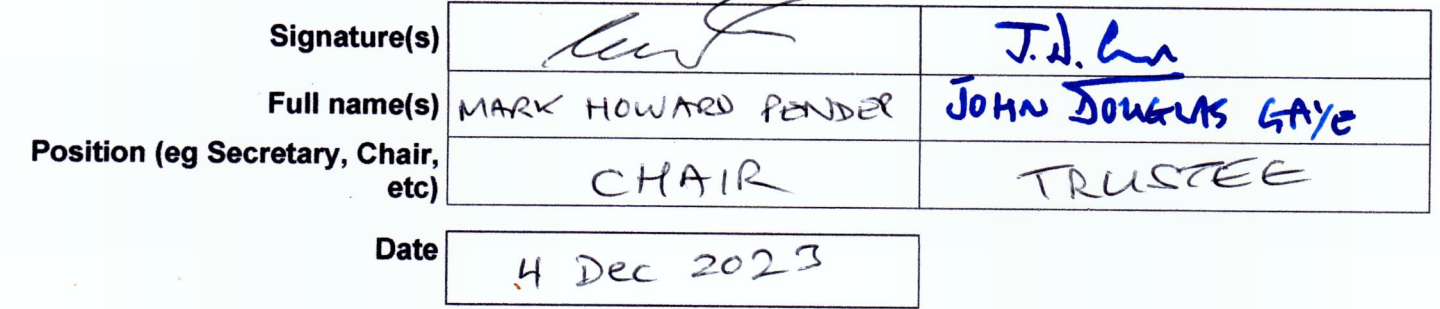 Signature(s) J.D.
Full name(s) MARK HOWARD PENDER JOHN DOUGLAS GAYE
Position (eg Secretary, Chair,
etc) CHAIR TRUSTEE
Date 4 Dec 2023